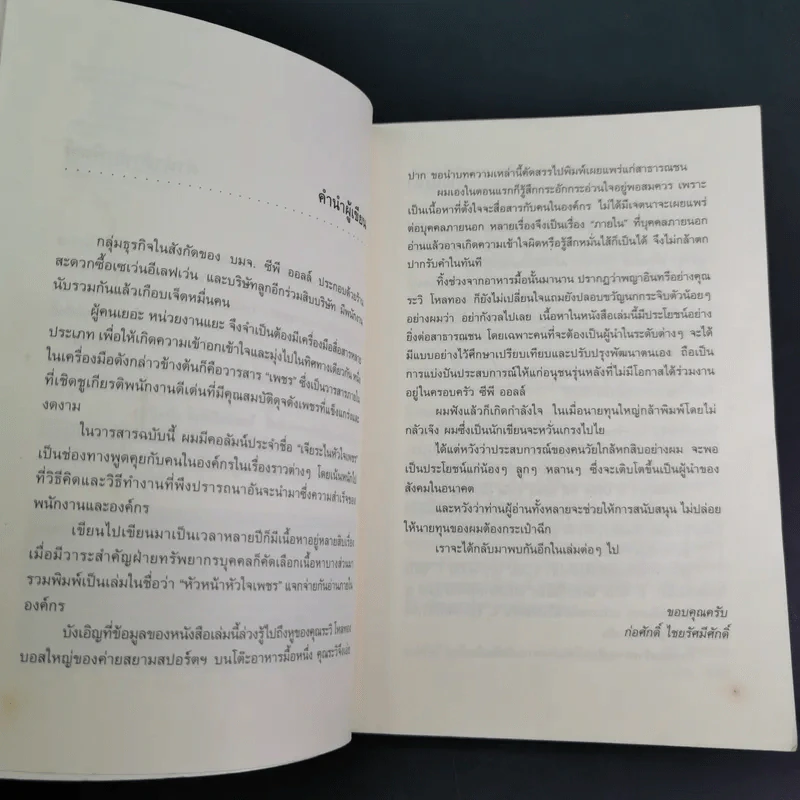 คำนำผู้เขียน
กลุ่มธุรกิจในสังกัดของ บมจ. ซีพี ออลล์ ประกอบด้วยร้าน
สะดวกซื้อเซเว่นอีเลฟเว่น และบริษัทลูกอีกร่วมสิบบริษัท มีพนักงาน
นับรวมกันแล้วเกือบเจ็ดหมื่นคน
ผู้คนเยอะ หน่วยงานแยะ จึงจำเป็นต้องมีเครื่องมือสื่อสารหลาย
ประเภท เพื่อให้เกิดความเข้าอกเข้าใจและมุ่งไปในทิศทางเดียวกัน หนึ่ง
ในเครื่องมือดังกล่าวข้างต้นก็คือวารสาร "เพชร" ซึ่งเป็นวารสารภายใน
ที่เชิดชูเกียรติพนักงานดีเด่นที่มีคุณสมบัติดุจดังเพชรที่แข็งแกร่งและ
งดงาม
ในวารสารฉบับนี้ ผมมีคอลัมน์ประจำชื่อ "เจียระไนหัวใจเพชร"
เป็นช่องทางพูดคุยกับคนในองค์กรในเรื่องราวต่างๆ โดยเน้นหนักไป
ที่วิธีคิดและวิธีทำงานที่พึงปรารถนาอันจะนำมาซึ่งความสำเร็จของ
พนักงานและองค์กร
เขียนไปเขียนมาเป็นเวลาหลายปีก็มีเนื้อหาอยู่หลายสิบเรื่อง
เมื่อมีวาระสำคัญฝ่ายทรัพยากรบุคคลก็คัดเลือกเนื้อหาบางส่วนมา
รวมพิมพ์เป็นเล่มในชื่อว่า "หัวหน้าหัวใจเพชร" แจกจ่ายกันอ่านภายใน
องค์กร
บังเอิญที่ข้อมูลของหนังสือเล่มนี้ล่วงรู้ไปถึงหูของคุณระวิ โหลทอง
บอสใหญ่ของค่ายสยามสปอร์ตฯ บนโต๊ะอาหารมื้อหนึ่ง คุณระวิจึงเอ่ย
ปาก ขอนำบทความเหล่านี้คัดสรรไปพิมพ์เผยแพร่แก่สาธารณชน
ผมเองในตอนแรกก็รู้สึกกระอักกระอ่วนใจอยู่พอสมควร เพราะ
เป็นเนื้อหาที่ตั้งใจจะสื่อสารกับคนในองค์กร ไม่ได้มีเจตนาจะเผยแพร่
ต่อบุคคลภายนอก หลายเรื่องจึงเป็นเรื่อง "ภายใน" ที่บุคคลภายนอก
อ่านแล้วอาจเกิดความเข้าใจผิดหรือรู้สึกหมั่นไส้ก็เป็นได้ จึงไม่กล้าตก
ปากรับคำในทันที
ทิ้งช่วงจากอาหารมื้อนั้นมานาน ปรากฏว่าพญาอินทรีอย่างคุณ
ระวิ โหลทอง ก็ยังไม่เปลี่ยนใจแถมยังปลอบขวัญนกกระจิบตัวน้อยๆ
อย่างผมว่า อย่ากังวลไปเลย เนื้อหาในหนังสือเล่มนี้มีประโยชน์อย่าง
ยิ่งต่อสาธารณชน โดยเฉพาะคนที่จะต้องเป็นผู้นำในระดับต่างๆ จะได้
มีแบบอย่างไว้ศึกษาเปรียบเทียบและปรับปรุงพัฒนาตนเอง ถือเป็น
การแบ่งปันประสบการณ์ให้แก่อนุชนรุ่นหลังที่ไม่มีโอกาสได้ร่วมงาน
อยู่ในครอบครัว ซีพี ออลล์
ผมฟังแล้วก็เกิดกำลังใจ ในเมื่อนายทุนใหญ่กล้าพิมพ์โดยไม่
กลัวเจ๊ง ผมซึ่งเป็นนักเขียนจะหวั่นเกรงไปไย
ได้แต่หวังว่าประสบการณ์ของคนวัยใกล้หกสิบอย่างผม จะพอ
เป็นประโยชน์แก่น้องๆ ลูกๆ หลานๆ ซึ่งจะเติบโตขึ้นเป็นผู้นำของ
สังคมในอนาคต
และหวังว่าท่านผู้อ่านทั้งหลายจะช่วยให้การสนับสนุน ไม่ปล่อย
ให้นายทุนของผมต้องกระเป๋าฉีก
เราจะได้กลับมาพบกันอีกในเล่มต่อๆ ไป
ขอบคุณครับ
ก่อศักดิ์ ไชยรัศมีศักดิ์